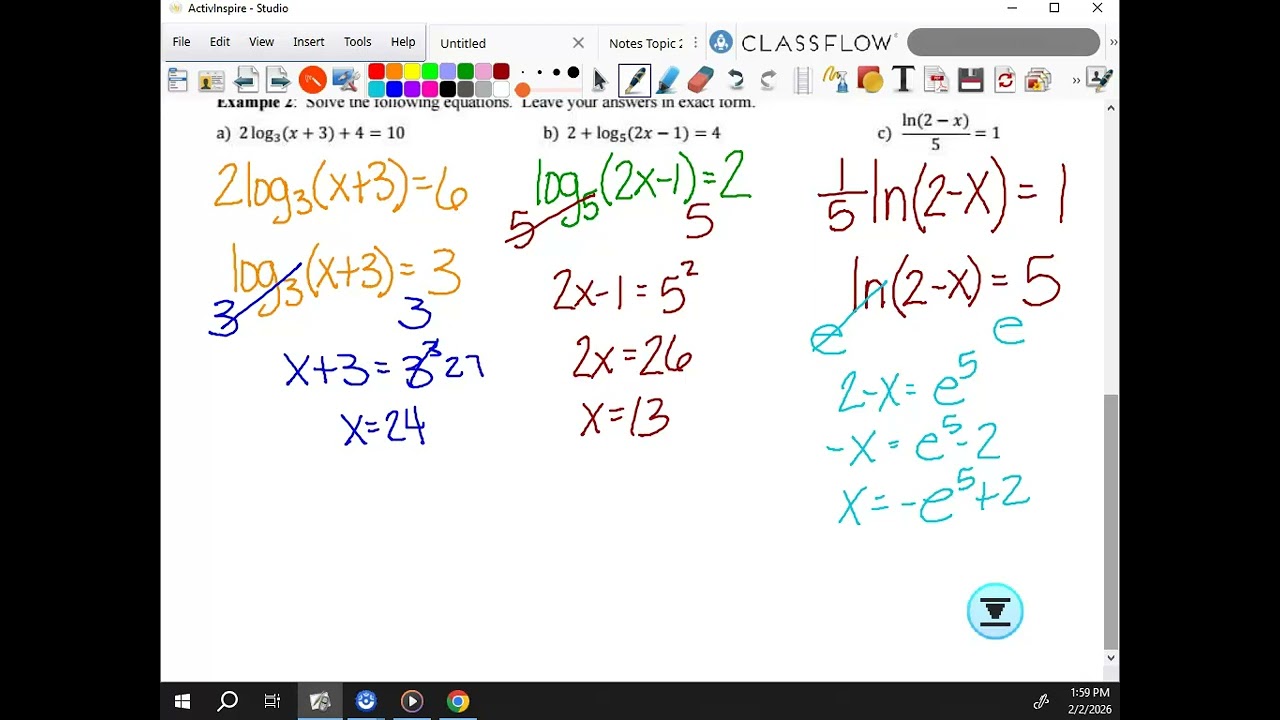 ActivInspire - Studio
File Edit View Insert Tools Help Untitled Notes Topic 2 CLASSFLOW
Example 2: Solve the following equations. Leave your answers in exact form.
a) 2 log₃(x + 3) + 4 = 10
2log₃(x+3)=6
log₃(x+3)=3
3 3
x+3=3³ 27
x=24
b) 2 + log₅(2x − 1) = 4
log₅(2x-1)=2
5 5
2x-1=5²
2x=26
x=13
c) ln(2 − x)/5 = 1
1/5 ln(2-x)=1
ln(2-x)=5
e e
2-x=e⁵
-x=e⁵-2
x=-e⁵+2
1:59 PM
2/2/2026